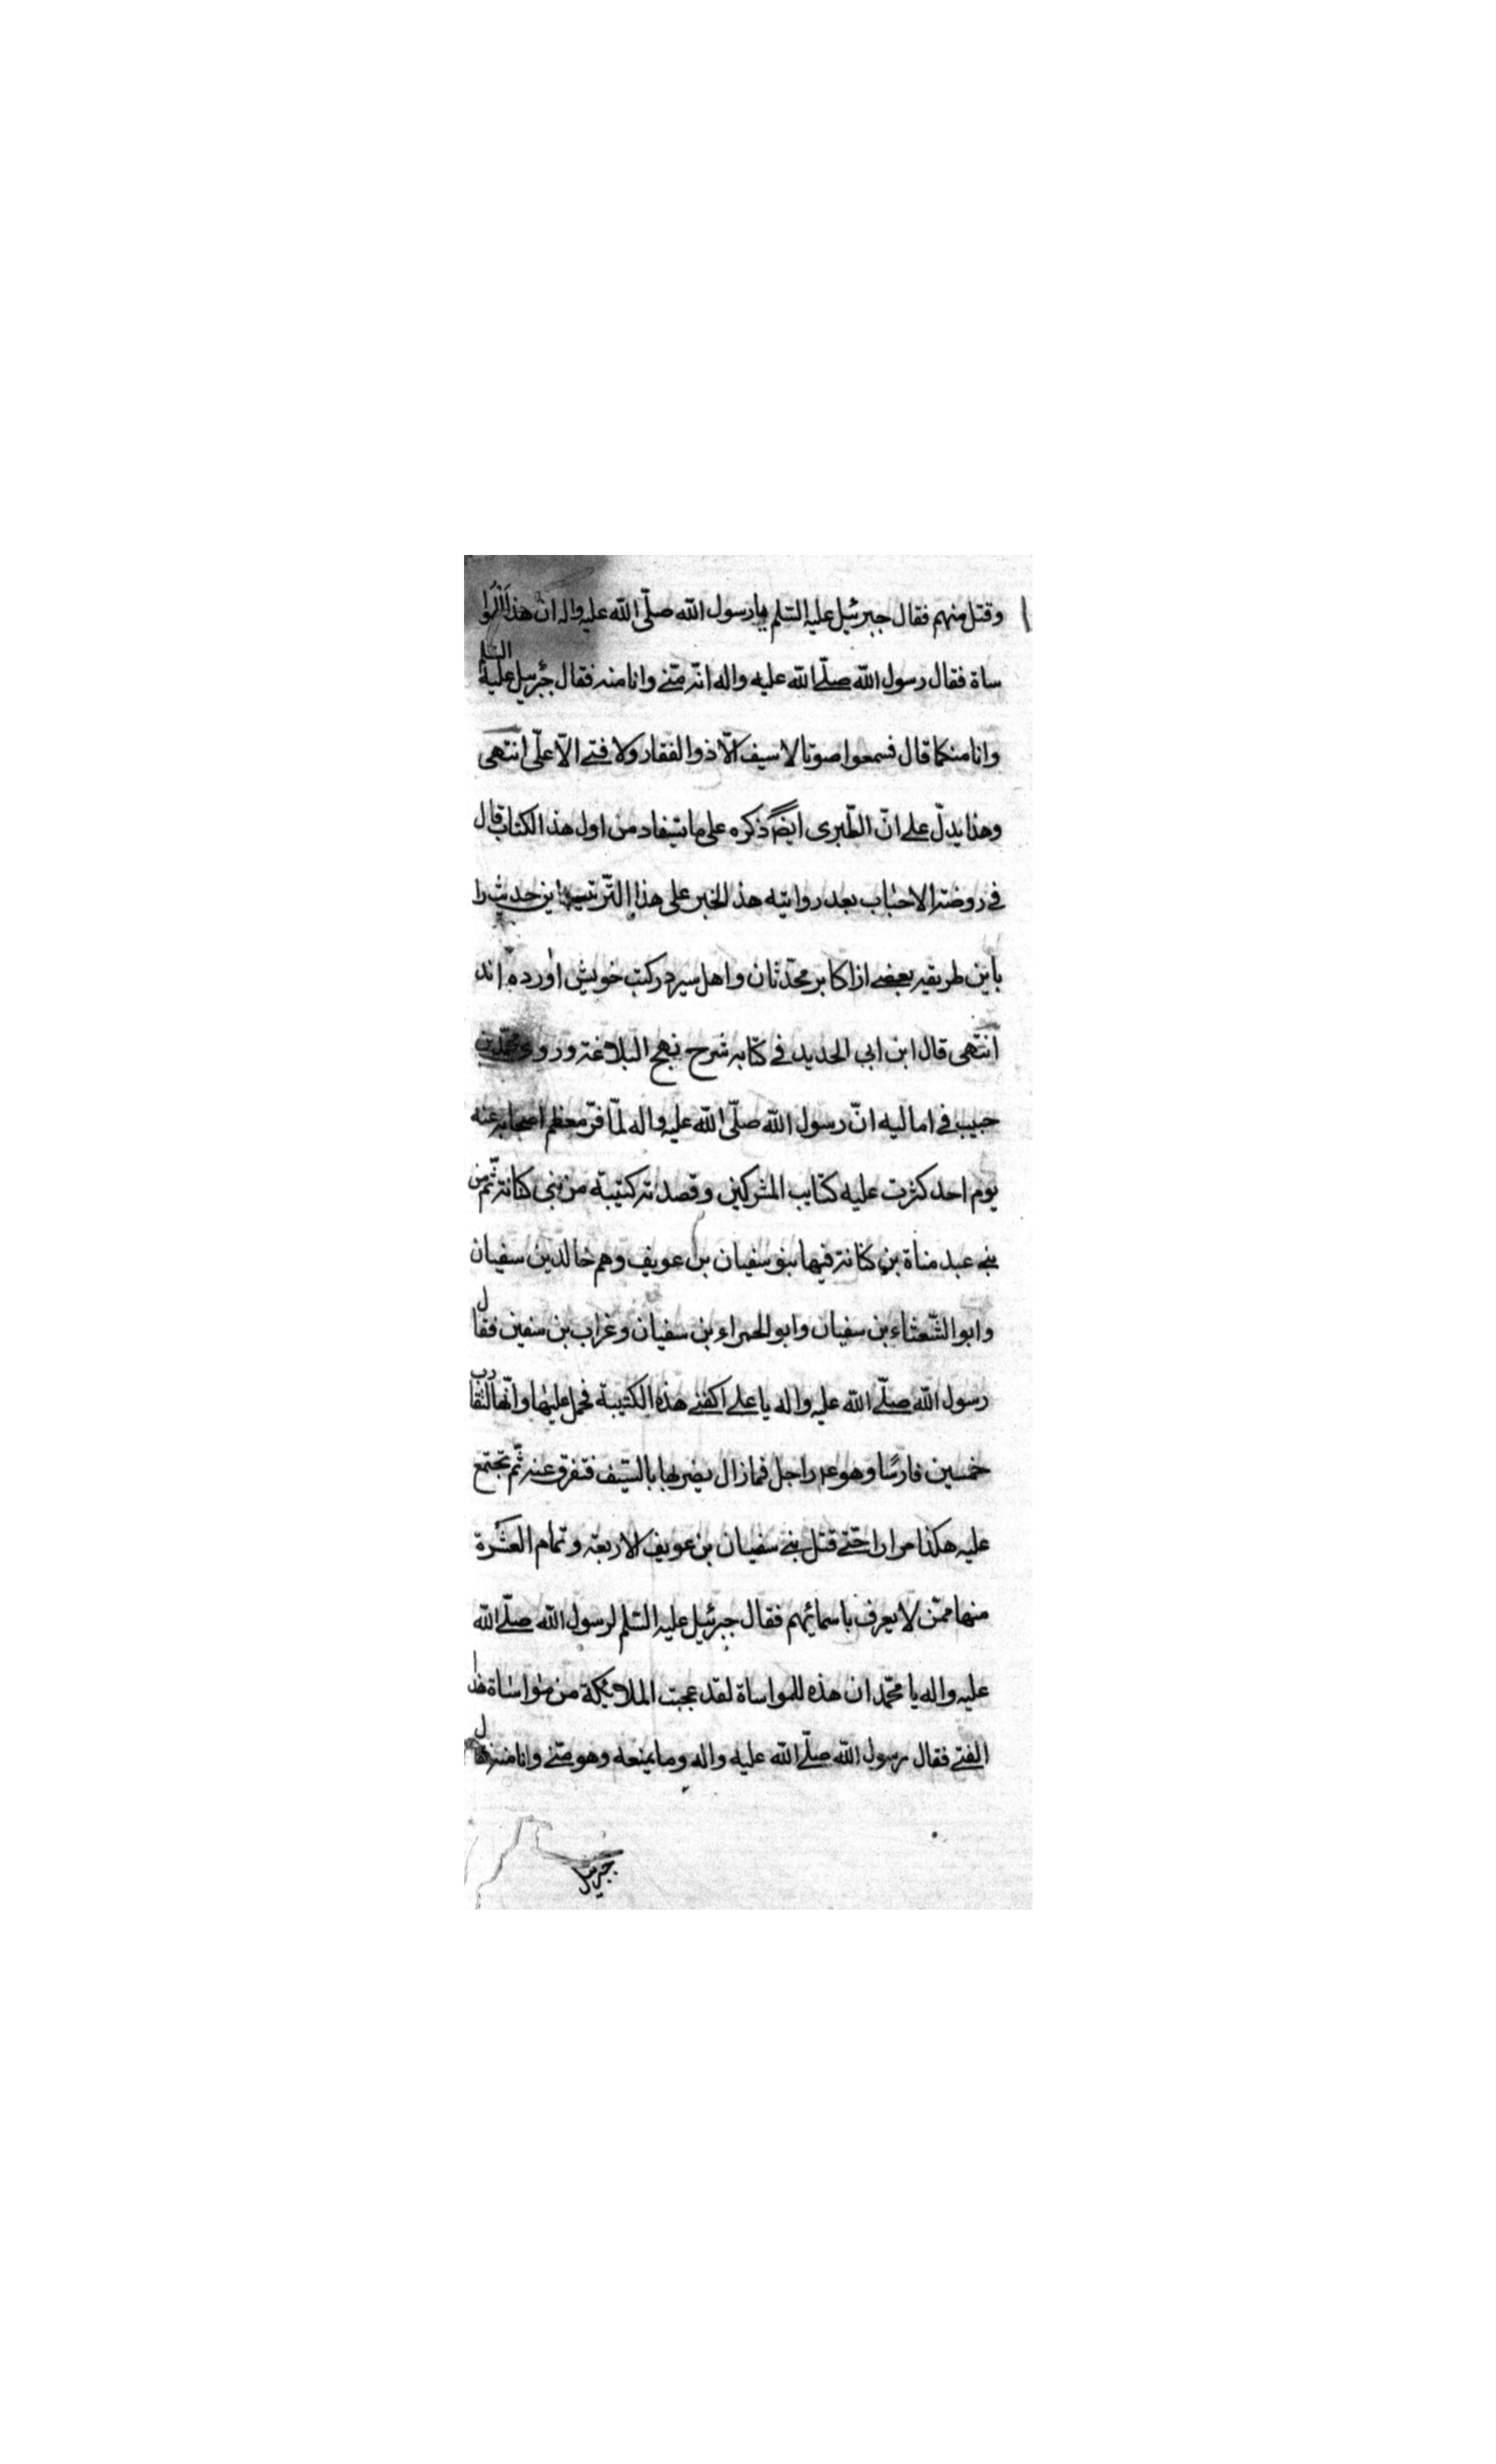 وقتل منهم فقال جبرئيل عليه السّلم يا رسول الله صلّى الله عليه واله ان هذا للموا
ساة فقال رسول الله صلّى الله عليه واله انّه منّى وانا منه فقال جبرئيل عليه السّلم
وانا منكما قال فسمعوا صوتا لا سيف الّا ذو الفقار ولا فتى الّا علىّ انتهى
وهذا يدلّ على انّ الطّبرى ايضًا ذكره على ما يستفاد من اول هذا الكتاب قال
فى روضة الاحباب بعد روايته هذا الخبر على هذا التّرتيب اين حديث را
باين طريقه بعضى از اكابر محدّثان واهل سير در كتب خويش اورده اند
انتهى قال ابن ابى الحديد فى كتابه شرح نهج البلاغة وروى محمّد بن
حبيب فى اماليه انّ رسول الله صلّى الله عليه واله لمّا فرّ معظم اصحابه عنه
يوم احد كثرت عليه كتايب المشركين وقصدته كتيبة من بنى كنانة ثمّ من
بنى عبد مناة بن كنانة فيها بنو سفيان بن عويف وهم خالد بن سفيان
وابو الشّعثاء بن سفيان وابو الحمراء بن سفيان وغراب بن سفين فقال
رسول الله صلّى الله عليه واله يا على اكفنى هذه الكتيبة فحمل عليها وانّها لتقارب
خمسين فارسًا وهو ع راجل فما زال يضربها بالسّيف فتفرق عنه ثمّ تجتمع
عليه هكذا مرارا حتّى قتل بنى سفيان بن عويف الاربعة وتمام العشرة
منها ممّن لا يعرف باسمائهم فقال جبرئيل عليه السّلم لرسول الله صلّى الله
عليه واله يا محمّد ان هذه للمواساة لقد عجبت الملائكة من مواساة هذا
الفتى فقال رسول الله صلّى الله عليه واله وما يمنعه وهو منّى وانا منه فقال
جبرئيل